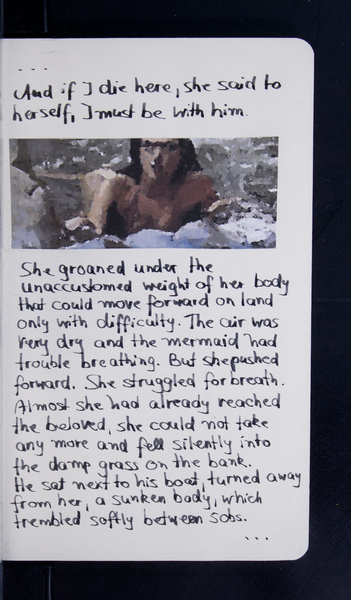 ...
And if I die here, she said to
herself, I must be with him.
She groaned under the
unaccustomed weight of her body
that could move forward on land
only with difficulty. The air was
very dry and the mermaid had
trouble breathing. But she pushed
forward. She struggled for breath.
Almost she had already reached
the beloved, she could not take
any more and fell silently into
the damp grass on the bank.
He sat next to his boat, turned away
from her, a sunken body, which
trembled softly between sobs.
...